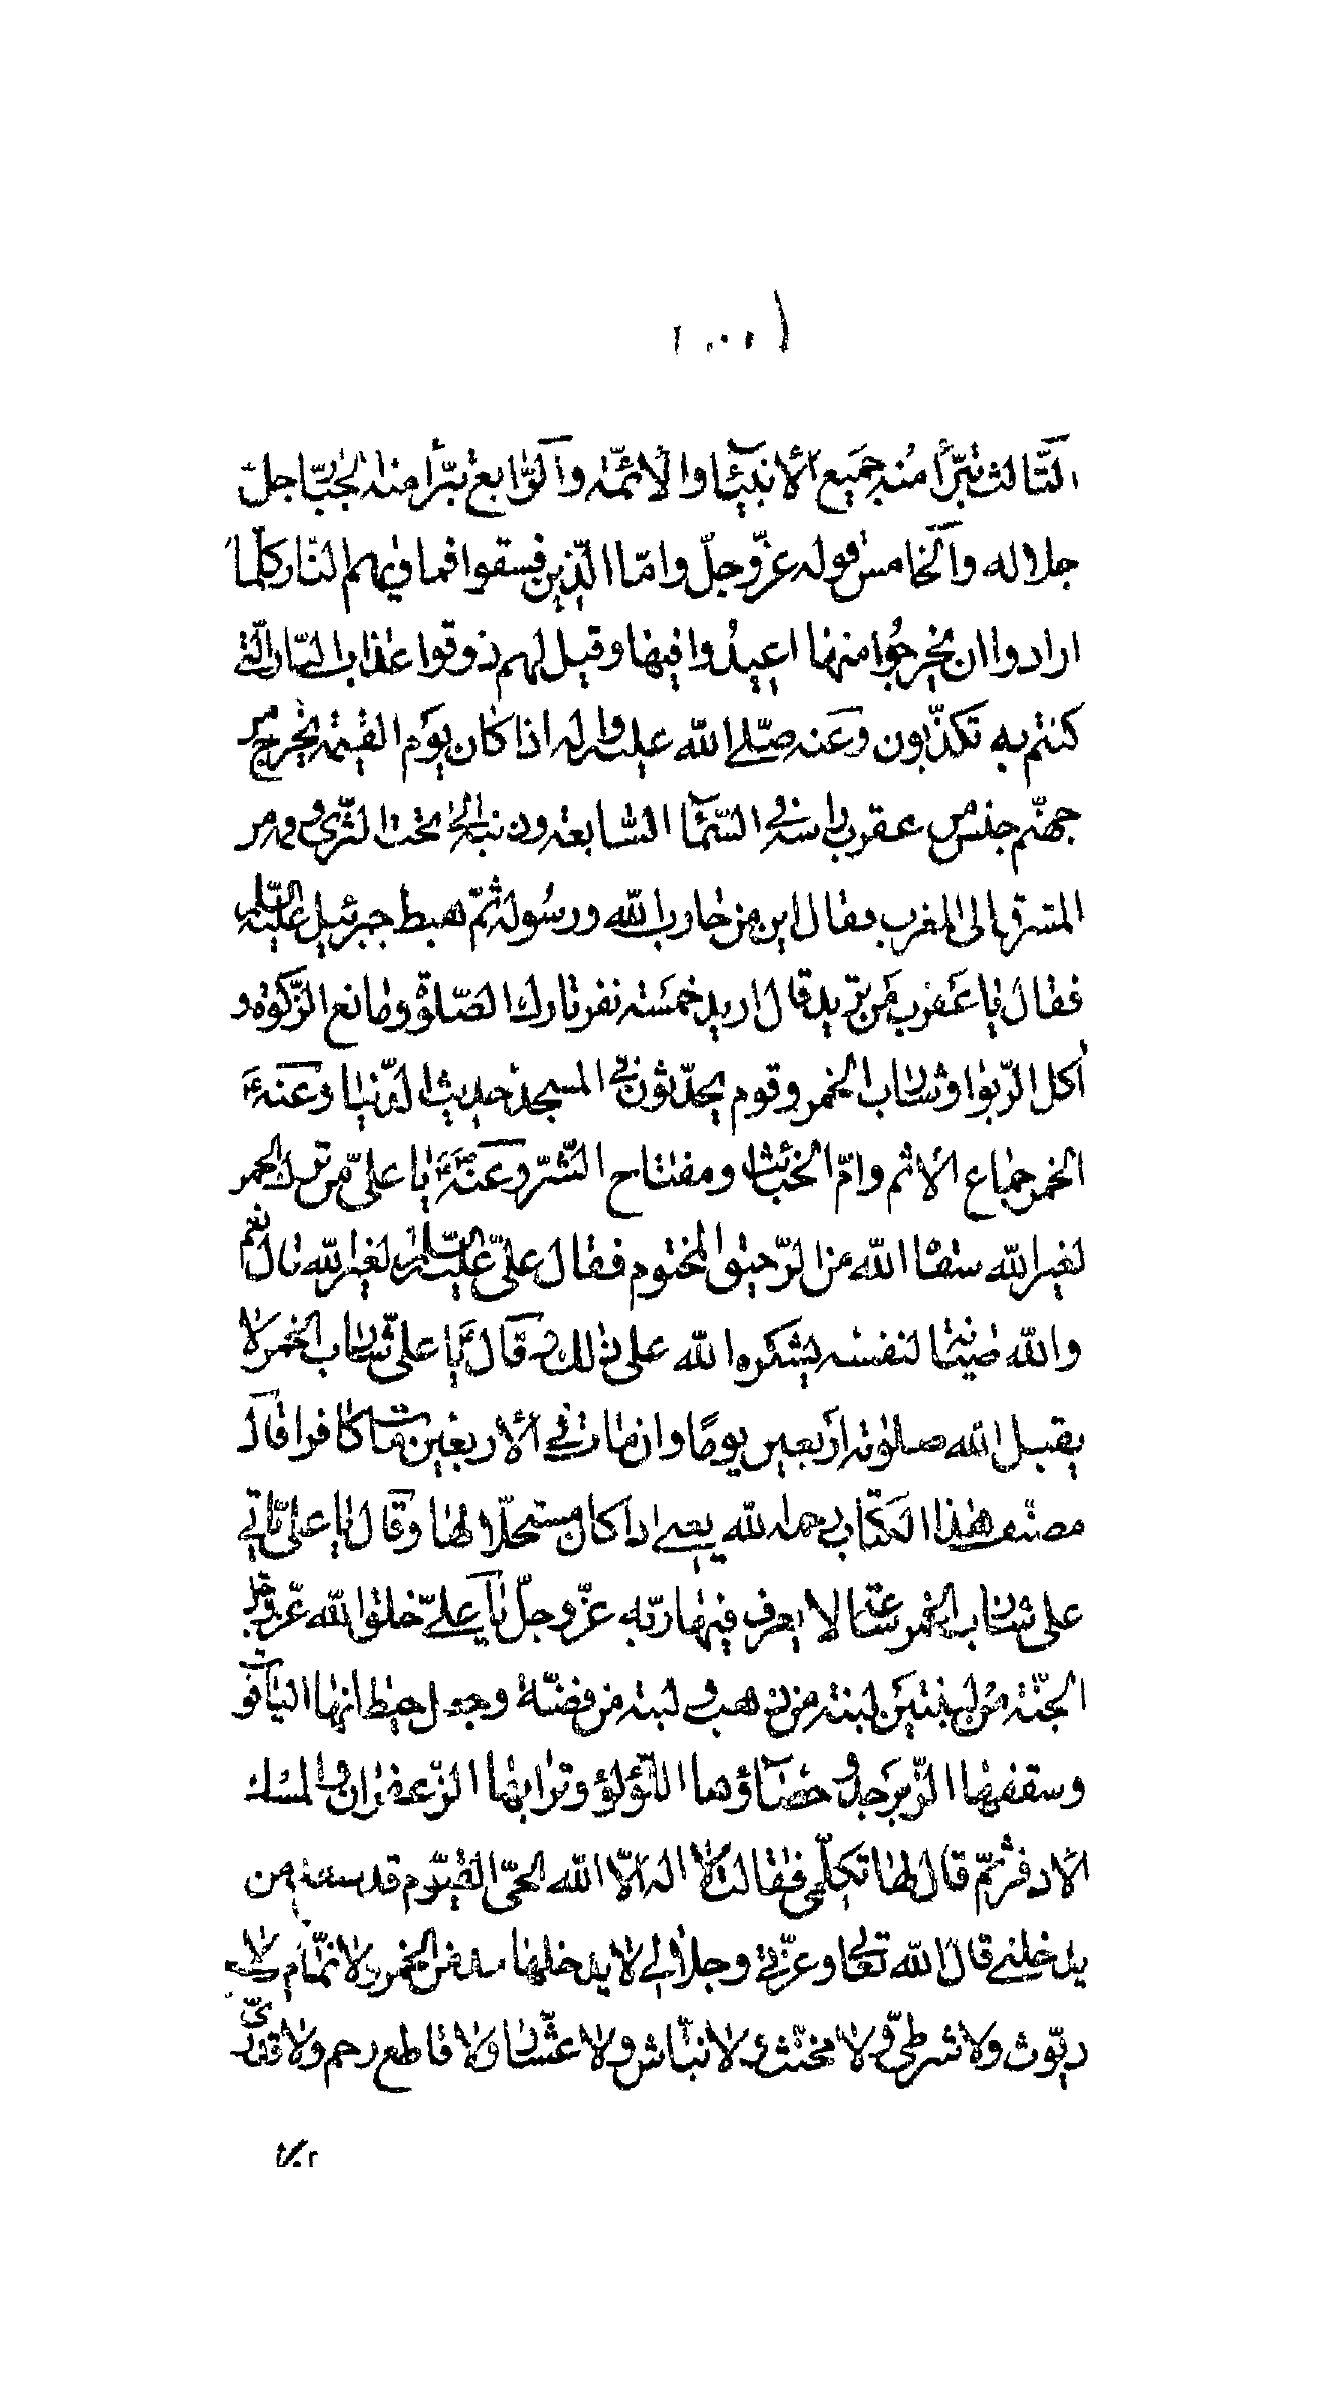 الثّالث تبرّأ منه جميع الأنبيآء والأئمّة والرّابع تبرّأ منه الجبّار جلّ
جلاله والخامس قوله عزّ وجلّ وامّا الّذين فسقوا فماويهم النّار كلّما
ارادوا ان يخرجوا منها اعيدوا فيها وقيل لهم ذوقوا عذاب النّار الّذى
كنتم به تكذّبون وعنه صلّى الله عليه واله اذا كان يوم القيمة يخرج من
جهنّم جنس من عقرب راسه فى السّمآء السّابعة وذنبه الى تحت الثّرى وفمه من
المشرق الى المغرب فقال اين من حارب الله ورسوله ثمّ هبط جبرئيل عليه السّلام
فقال يا عقرب من تريد قال اريد خمسة نفر تارك الصّلوة ومانع الزّكوة و
اكل الرّبوا وشارب الخمر وقوم يحدّثون فى المسجد حديث الدّنيا وعنه ع
الخمر جماع الأثم وامّ الخبائث ومفتاح الشّرّ وعنه ع يا علىّ من ترك الخمر
لغير الله سقاه الله من الرّحيق المختوم فقال علىّ عليه السّلام لغير الله قال نعم
والله صيانة لنفسه يشكره الله على ذلك وقال يا على شارب الخمر لا
يقبل الله صلوته اربعين يومًا وان مات فى الأربعين مات كافرا قال
مصنّف هذا الكتاب رحمه الله يعنى اذا كان مستحلّا لها وقال يا على تاتى
على شارب الخمر ساعة لا يعرف فيها ربّه عزّ وجلّ يا علىّ خلق الله عزّ وجلّ
الجنّة من لبنتين لبنة من ذهب ولبنة من فضّة وجعل حيطانها الياقو
وسقفها الزّبرجد وحصاؤها اللّؤلؤ وترابها الزّعفران والمسك
الاذفر ثمّ قال لها تكلّمى فقالت لا اله الّا الله الحىّ القيّوم قد سعد من
يدخلنى قال الله تعالى وعزّتى وجلالى لا يدخلها مدمن الخمر ولا نمّام ولا
ديّوث ولا شرطىّ ولا مخنّث ولا نبّاش ولا عشّار ولا قاطع رحم ولا قدرىّ